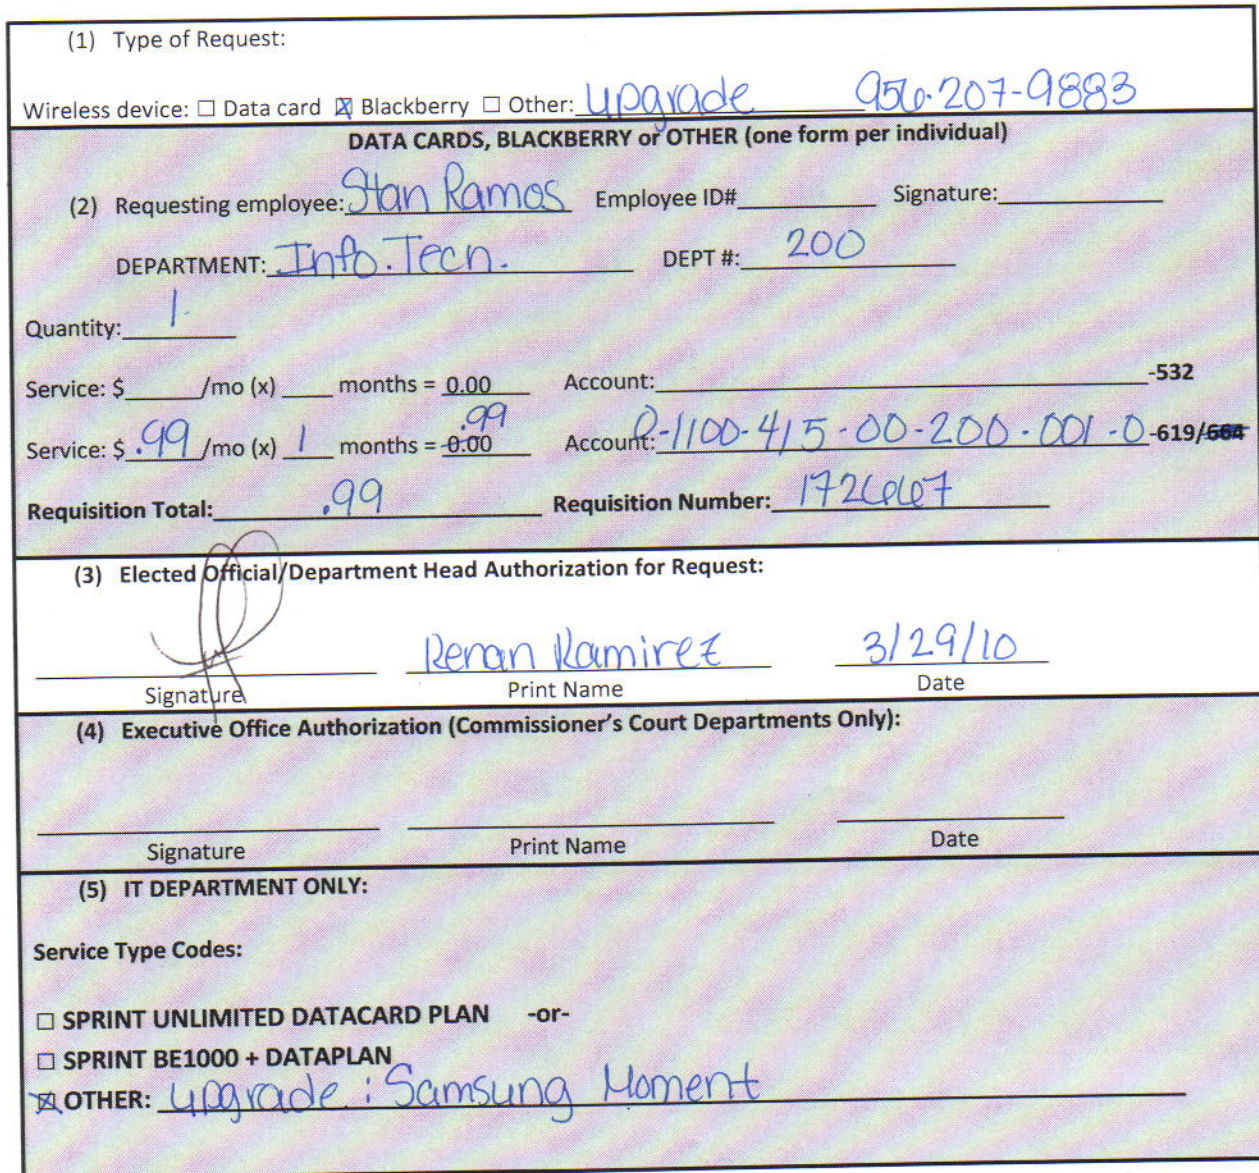 (1) Type of Request:
Wireless device: ☐ Data card ☒ Blackberry ☐ Other: Upgrade 956-207-9883
DATA CARDS, BLACKBERRY or OTHER (one form per individual)
(2) Requesting employee: Stan Ramos Employee ID# Signature:
DEPARTMENT: Info. Tech. DEPT #: 200
Quantity: 1
Service: $ /mo (x) months = 0.00 Account: -532
.99
Service: $ .99 /mo (x) 1 months = 0.00 Account: 0-1100-415-00-200-001-0-619/664
Requisition Total: .99 Requisition Number: 172667
(3) Elected Official/Department Head Authorization for Request:
Renan Ramirez 3/29/10
Signature Print Name Date
(4) Executive Office Authorization (Commissioner's Court Departments Only):
Signature Print Name Date
(5) IT DEPARTMENT ONLY:
Service Type Codes:
☐ SPRINT UNLIMITED DATACARD PLAN -or-
☐ SPRINT BE1000 + DATAPLAN
☒ OTHER: Upgrade: Samsung Moment